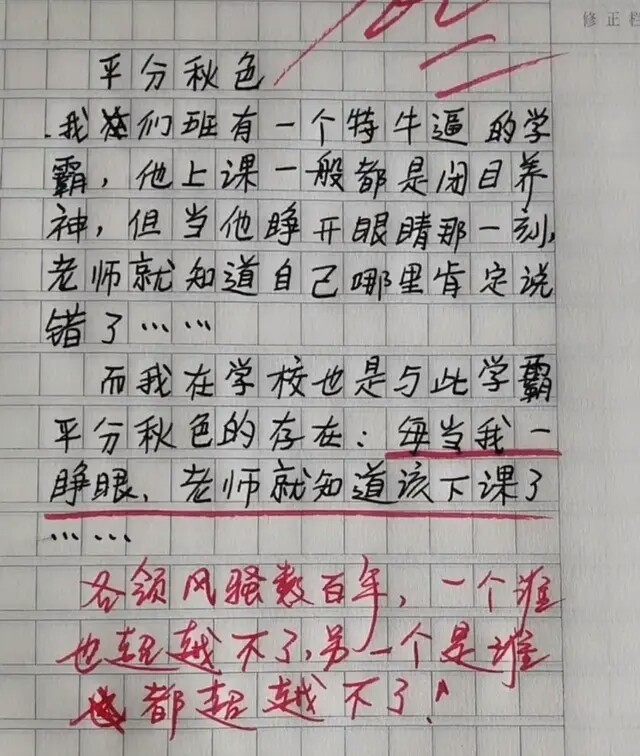 修正栏
平分秋色
我们班有一个特牛逼的学
霸，他上课一般都是闭目养
神，但当他睁开眼睛那一刻，
老师就知道自己哪里肯定说
错了……
而我在学校也是与此学霸
平分秋色的存在：每当我一
睁眼，老师就知道该下课了
……
各领风骚数百年，一个谁
也超越不了，另一个是谁
都超越不了！